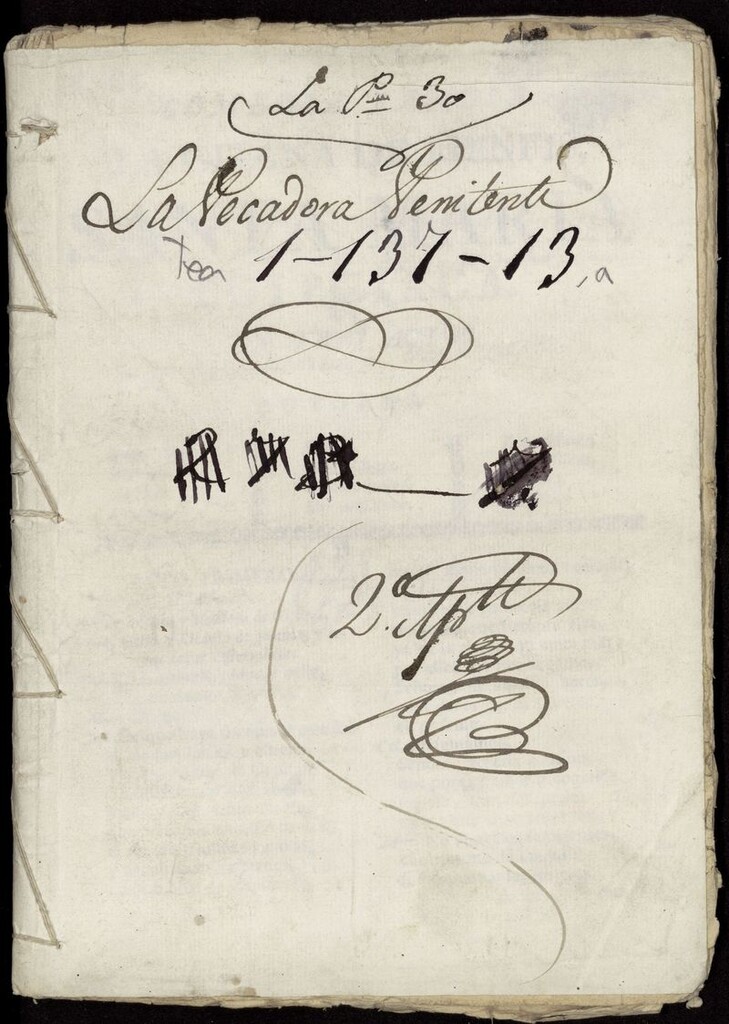 La P 30
La Pecadora Penitente
Tea 1-137-13, a
2º Apte